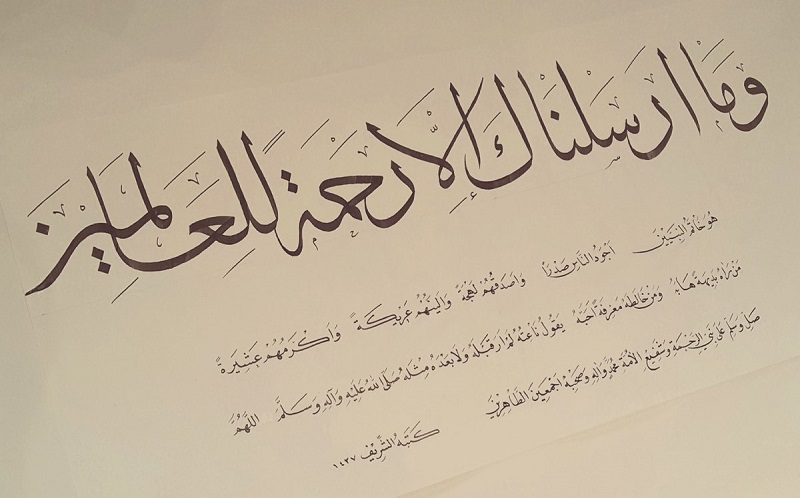 وَمَا أَرْسَلْنَاكَ إِلَّا رَحْمَةً لِلْعَالَمِينَ
هُوَ خَاتَمُ النَّبِيِّينَ أَجْوَدُ النَّاسِ صَدْرًا وَأَصْدَقُهُمْ لَهْجَةً وَأَلْيَنُهُمْ عَرِيكَةً وَأَكْرَمُهُمْ عَشِيرَةً
مَنْ رَآهُ بَدِيهَةً هَابَهُ وَمَنْ خَالَطَهُ مَعْرِفَةً أَحَبَّهُ يَقُولُ نَاعِتُهُ لَمْ أَرَ قَبْلَهُ وَلَا بَعْدَهُ مِثْلَهُ صَلَّى اللهُ عَلَيْهِ وَآلِهِ وَسَلَّمَ اللَّهُمَّ
صَلِّ وَسَلِّمْ عَلَى نَبِيِّ الرَّحْمَةِ وَشَفِيعِ الْأُمَّةِ مُحَمَّدٍ وَآلِهِ وَصَحْبِهِ أَجْمَعِينَ الطَّاهِرِينَ
كَتَبَهُ الشَّرِيفُ ١٤٣٧